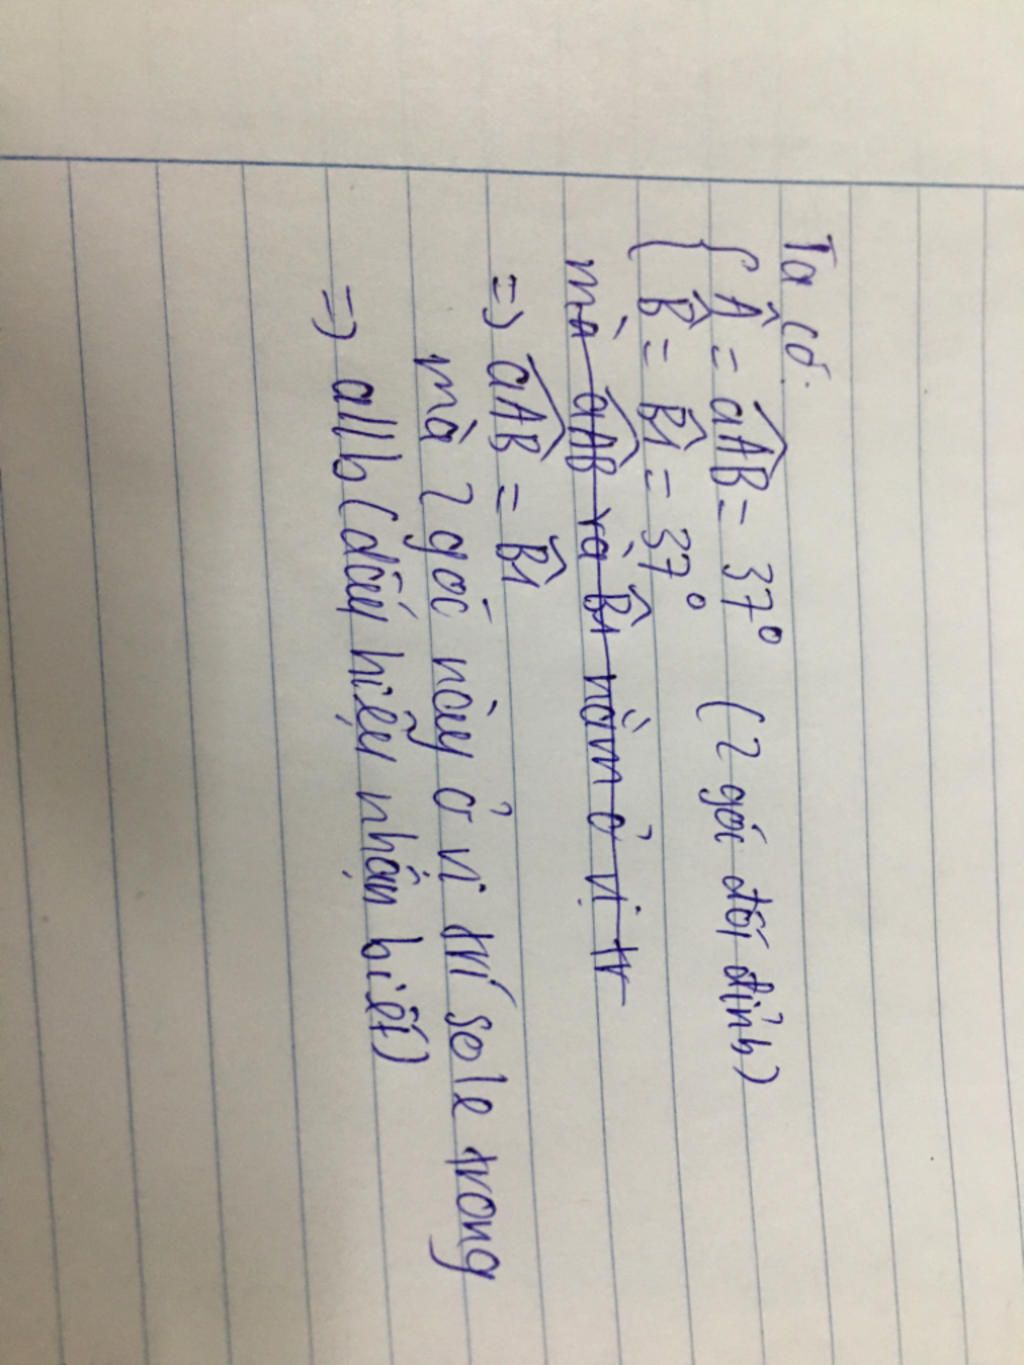 Ta có:
{ Â = aÂB = 37° (2 góc đối đỉnh)
{ B̂ = B̂1 = 37°
mà aÂB và B̂1 nằm ở vị tr
=> aÂB = B̂1
mà 2 góc này ở vị trí sole trong
=> a||b (dấu hiệu nhận biết)